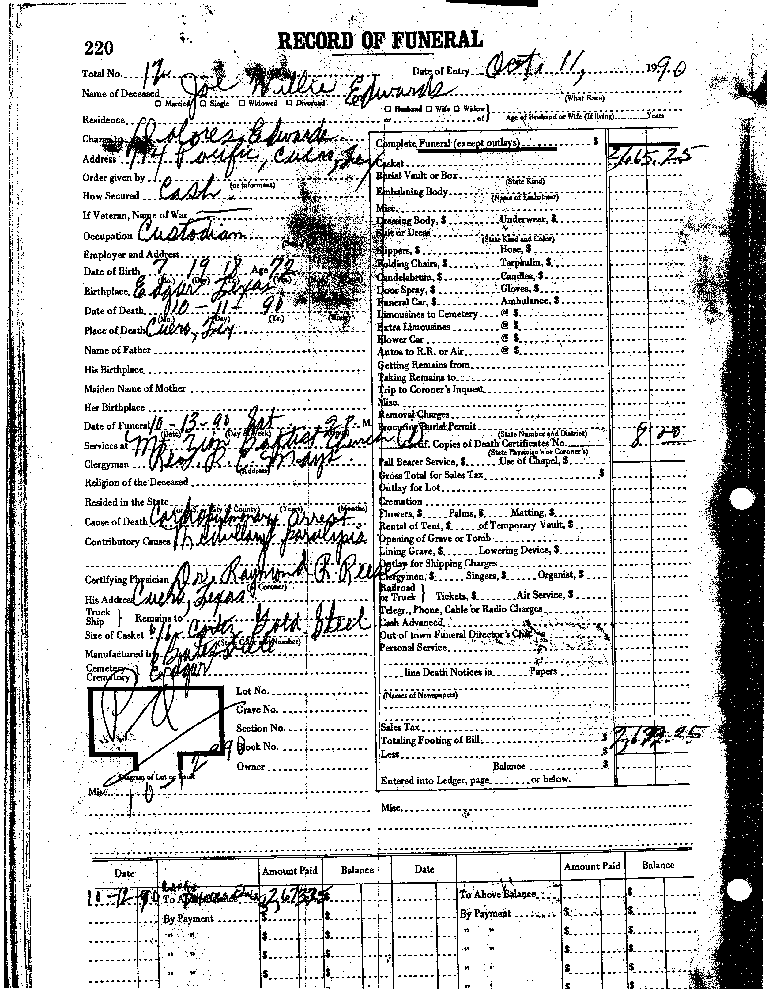 220
RECORD OF FUNERAL
Total No. 12 Date of Entry Oct. 11, 1990
Name of Deceased Joe Willie Edwards (What Race)
☐ Married ☐ Single ☐ Widowed ☐ Divorced ☐ Husband ☐ Wife ☐ Widow
or of Age of Husband or Wife (If living) Years
Residence
Charge to Dolores Edwards
Address Pacific, Cuero, Texas
Order given by (or informant)
How Secured Cash
If Veteran, Name of War
Occupation Custodian
Employer and Address
Date of Birth 7 19 18 Age 72
Birthplace Edgar, Texas
Date of Death 10-11-90
(Mo.) (Day) (Yr.)
Place of Death Cuero, Tex
Name of Father
His Birthplace
Maiden Name of Mother
Her Birthplace
Date of Funeral 10-13-90 Sat 2 P. M.
(Date) (Day of Week)
Services at Mt. Zion Baptist Church
Clergyman Rev. R. E. Mays
(Address)
Religion of the Deceased
Resided in the State
(City or County) (Years) (Months)
Cause of Death Cardiopulmonary Arrest
Contributory Causes Medullary Paralysis
Certifying Physician Dr. Raymond R. Reese
His Address Cuero, Texas (or Coroner)
Truck
Ship } Remains to
Size of Casket Gold Steel
Manufactured by
Cemetery
Crematory } Edgar
Lot No.
Grave No.
Section No.
Book No.
Owner
Diagram of Lot or Vault
Misc.
Complete Funeral (except outlays) $ 2,665.25
Casket
Burial Vault or Box
(State Kind)
Embalming Body
(Name of Embalmer)
Misc.
Dressing Body, $ Underwear, $
Suit or Dress
(State Kind and Color)
Slippers, $ Hose, $
Folding Chairs, $ Tarpaulin, $
Candelabrum, $ Candles, $
Door Spray, $ Gloves, $
Funeral Car, $ Ambulance, $
Limousines to Cemetery @ $
Extra Limousines @ $
Flower Car @ $
Autos to R.R. or Air @ $
Getting Remains from
Taking Remains to
Trip to Coroner's Inquest
Misc.
Removal Charges
Procuring Burial Permit
(State Number and District)
Certif. Copies of Death Certificates No. 8.00
(State Physician's or Coroner's)
Pall Bearer Service, $ Use of Chapel, $
Gross Total for Sales Tax $
Outlay for Lot
Cremation
Flowers, $ Palms, $ Matting, $
Rental of Tent, $ of Temporary Vault, $
Opening of Grave or Tomb
Lining Grave, $ Lowering Device, $
Outlay for Shipping Charges
Clergymen, $ Singers, $ Organist, $
Railroad
or Truck } Tickets, $ Air Service, $
Telegr., Phone, Cable or Radio Charges
Cash Advanced
Out of Town Funeral Director's Chg.
Personal Service
line Death Notices in Papers
(Names of Newspapers)
Sales Tax
Totaling Footing of Bill $
Less
Balance $
Entered into Ledger, page or below.
Misc.
Date Amount Paid Balance Date Amount Paid Balance
10-12-90 To Above Balance To Above Balance $
By Payment $ By Payment $ $
" " $ " " $ $
" " $ " " $ $
" " $ " " $ $